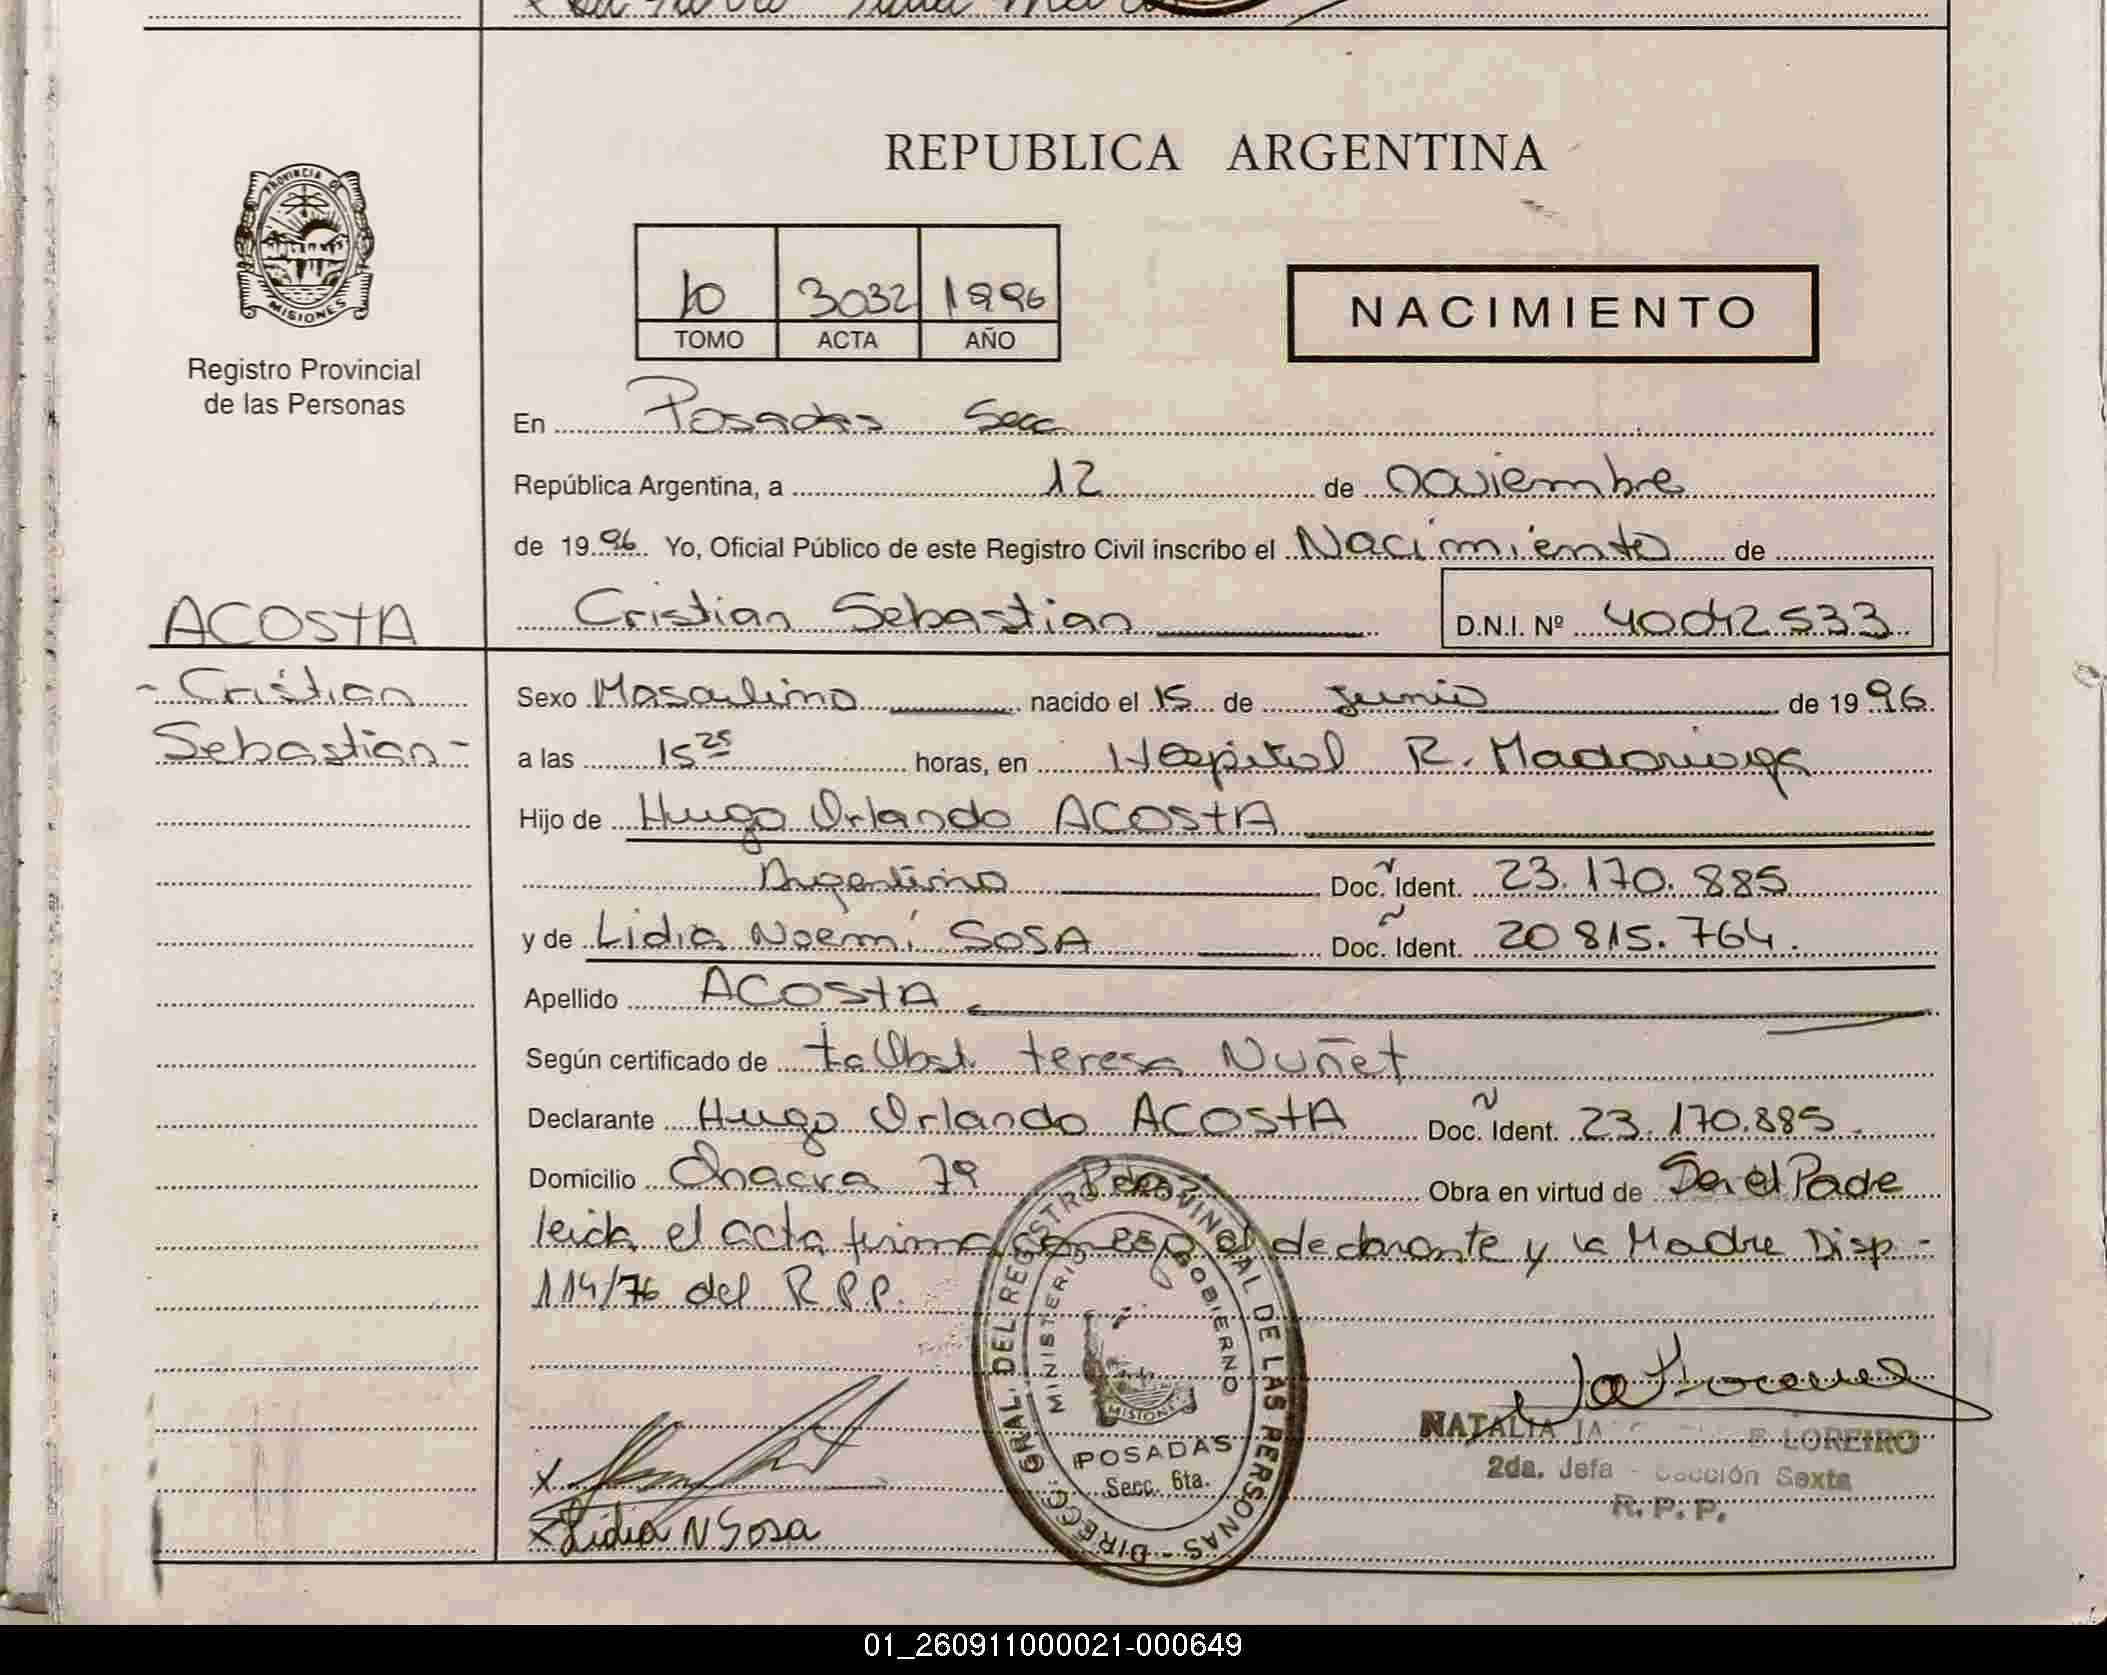 REPUBLICA ARGENTINA
PROVINCIA DE
MISIONES
Registro Provincial
de las Personas
10 3032 1996
TOMO ACTA AÑO
NACIMIENTO
En Posadas Secc
República Argentina, a 12 de noviembre
de 1996 Yo, Oficial Público de este Registro Civil inscribo el Nacimiento de
ACOSTA
Cristian Sebastian D.N.I. Nº 40042533
- Cristian
Sebastian -
Sexo Masculino nacido el 15 de junio de 1996
a las 15 25 horas, en Hospital R. Madariaga
Hijo de Hugo Orlando ACOSTA
Argentino Doc. Ident. 23.170.885
y de Lidia Noemí SOSA Doc. Ident. 20 815.764.
Apellido ACOSTA
Según certificado de Teresa Nuñet
Declarante Hugo Orlando ACOSTA Doc. Ident. 23.170.885
Domicilio Chacra 79 Pdas Obra en virtud de Ser el Padre
leida el acta firma el declarante y la Madre Disp -
114/76 del R.P.P.
DIRECC. GRAL. DEL REGISTRO PROVINCIAL DE LAS PERSONAS
MINISTERIO GOBIERNO
MISIONES
POSADAS
Secc. 6ta.
NATALIA LOREIRO
2da. Jefa - Sección Sexta
R. P. P.
x
x Lidia N Sosa
01_260911000021-000649